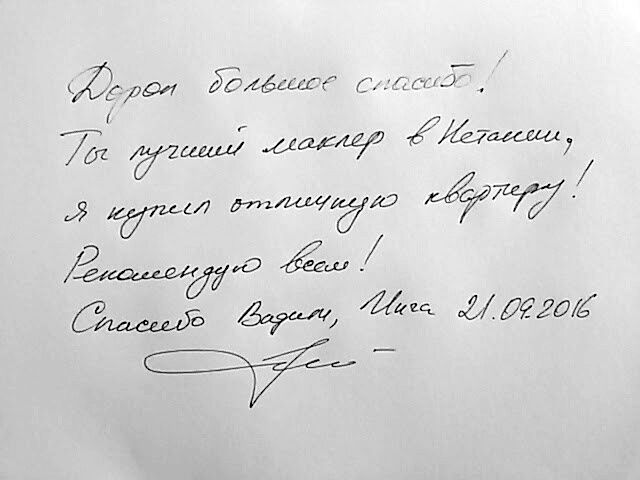 Дорон большое спасибо!
Ты лучший маклер в Нетании,
я купил отличную квартиру!
Рекомендую всем!
Спасибо Вадим, Инга 21.09.2016